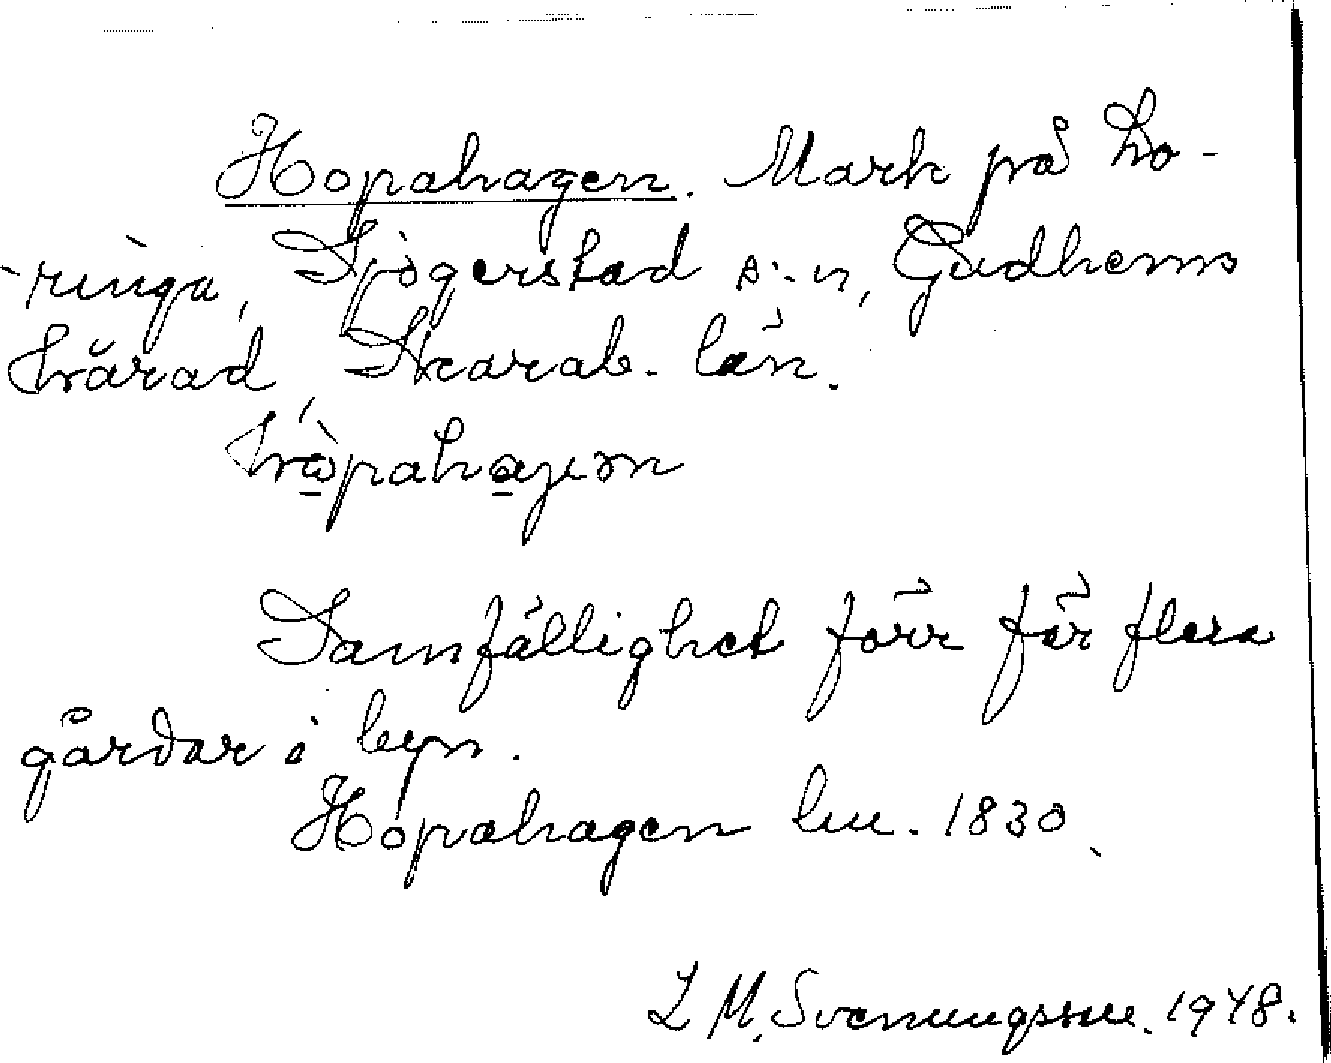 Hopahagen. Mark på Ho-
ringa, Sjogerstad s:n, Gudhems
härad, Skarab. län.
hòpahagen
Samfällighet förr för flera
gårdar i byn.
Hopahagen lm. 1830.
L M. Svenungsson. 1948.